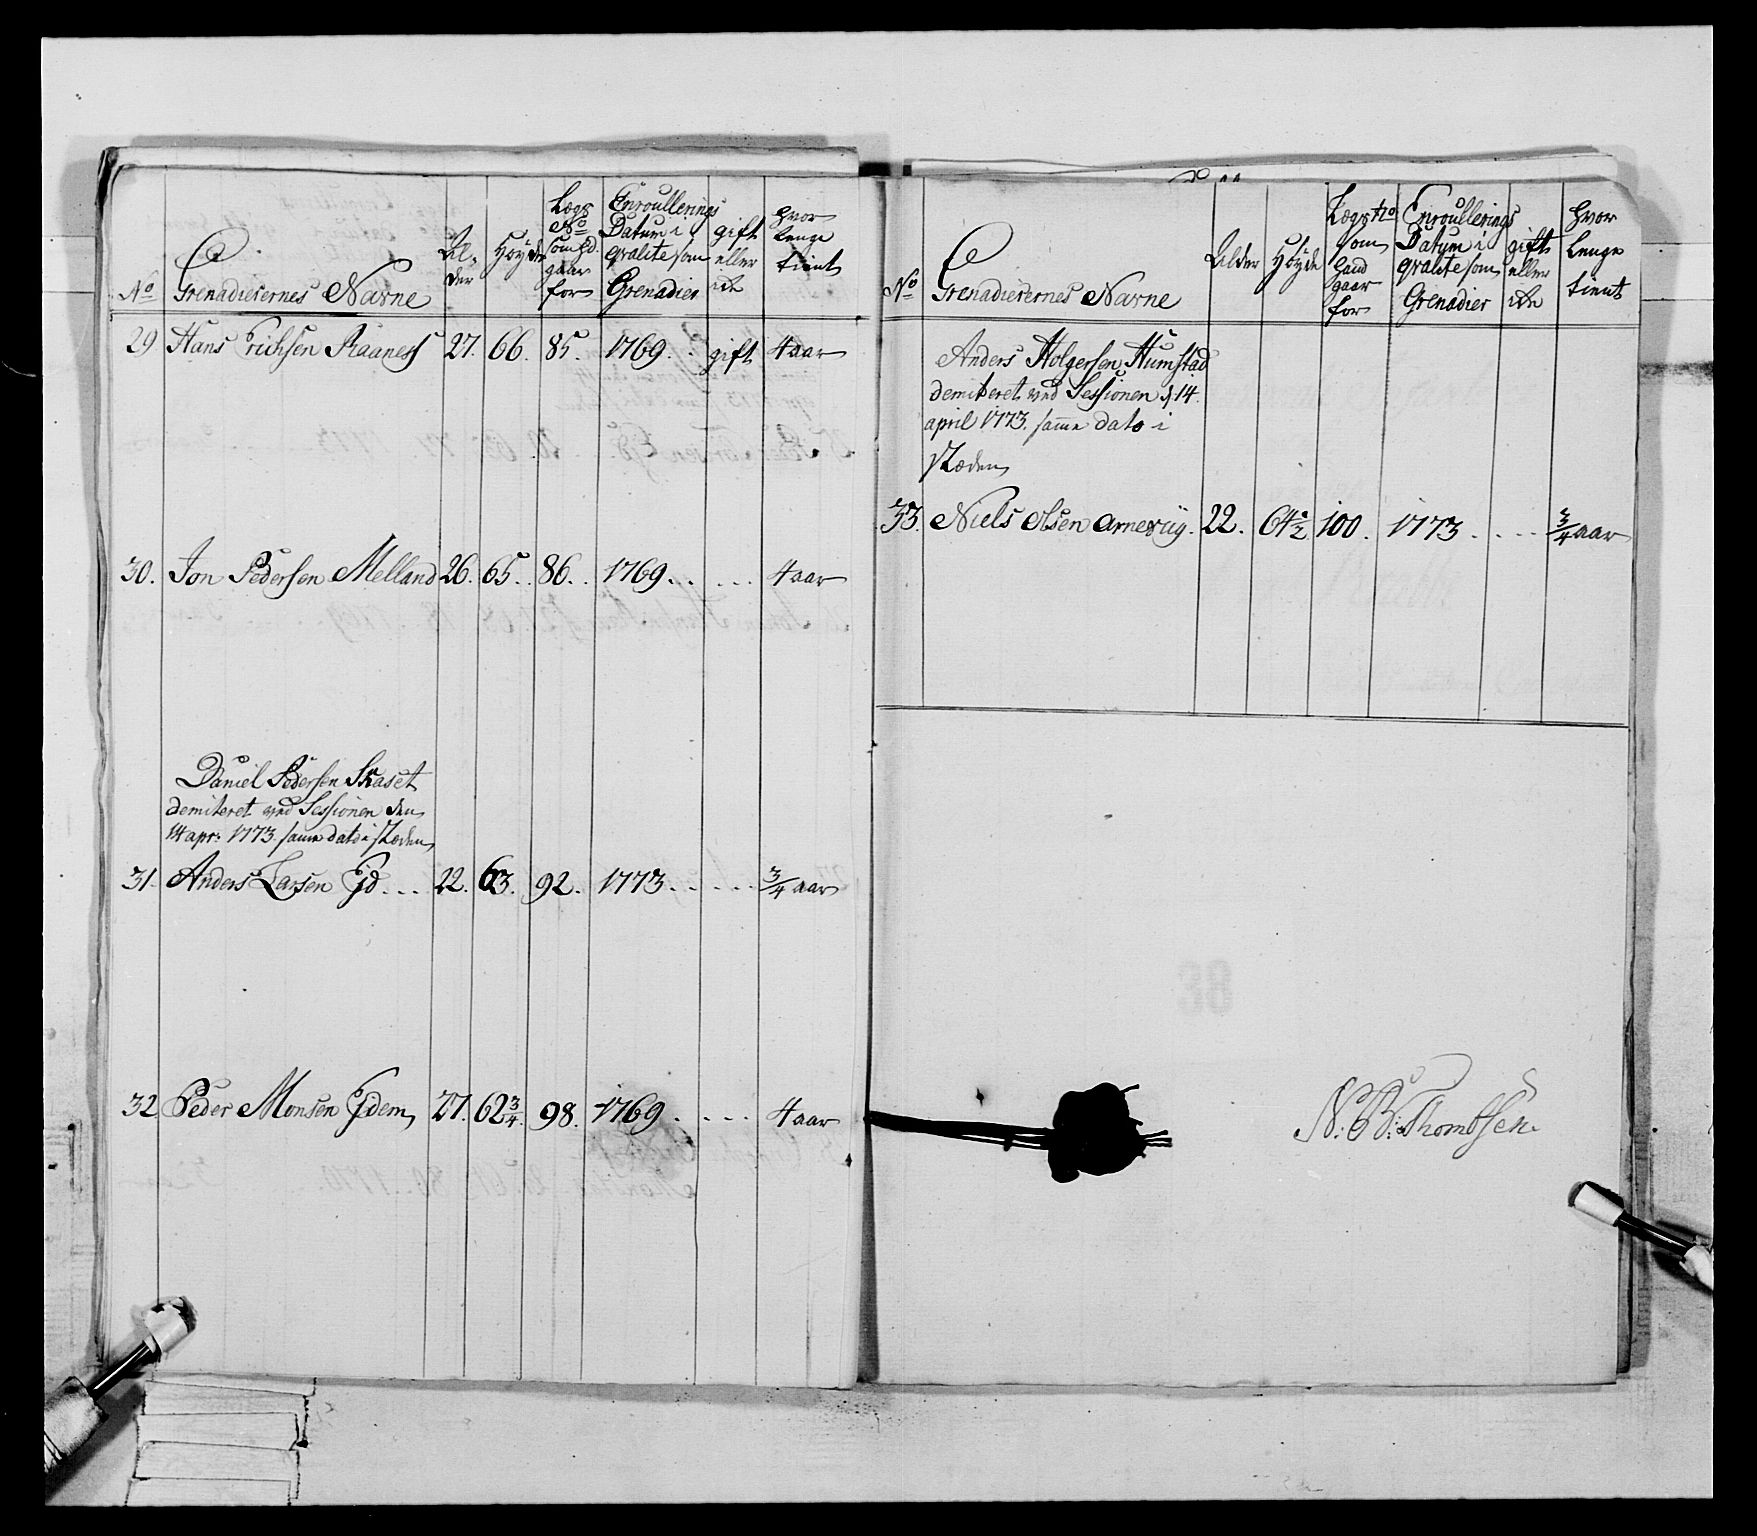 No
Grenaderernes Navne
Al-
der
Høyde
Lægs
No
som Hd
gaar
for
Enroullerings
Datum i
qvalite som
Grenadier
gift
eller
ei
hvor
lenge
tient
29 Hans Erichsen Raaness 27. 66. 85. 1769. gift 4 aar
30. Jon Pedersen Melland 26. 65. 86. 1769. 4 aar
Daniel Pedersen Skaset
demiteret ved Sessionen den
14 apr: 1773. samme dato i stæden
31. Anders Larsen Ejd 22. 63. 92. 1773. 3/4 aar
32 Peder Monsen Ejdem 27. 62 3/4. 98. 1769. 4 aar
No
Grenaderernes Navne
Alder
Høyde
Lægs No
som
hand
gaar
for
Enroullerings
Datum i
qvalite som
Grenadier
gift
eller
hvor
lenge
tient
Anders Holgersen Humstad
demiteret ved Sessionen d 14
april 1773. samme dato i
stæden
33. Niels Olsen Arnevig. 22. 64 1/2 100. 1773. 3/4 aar
38
N: B: Thombsen.